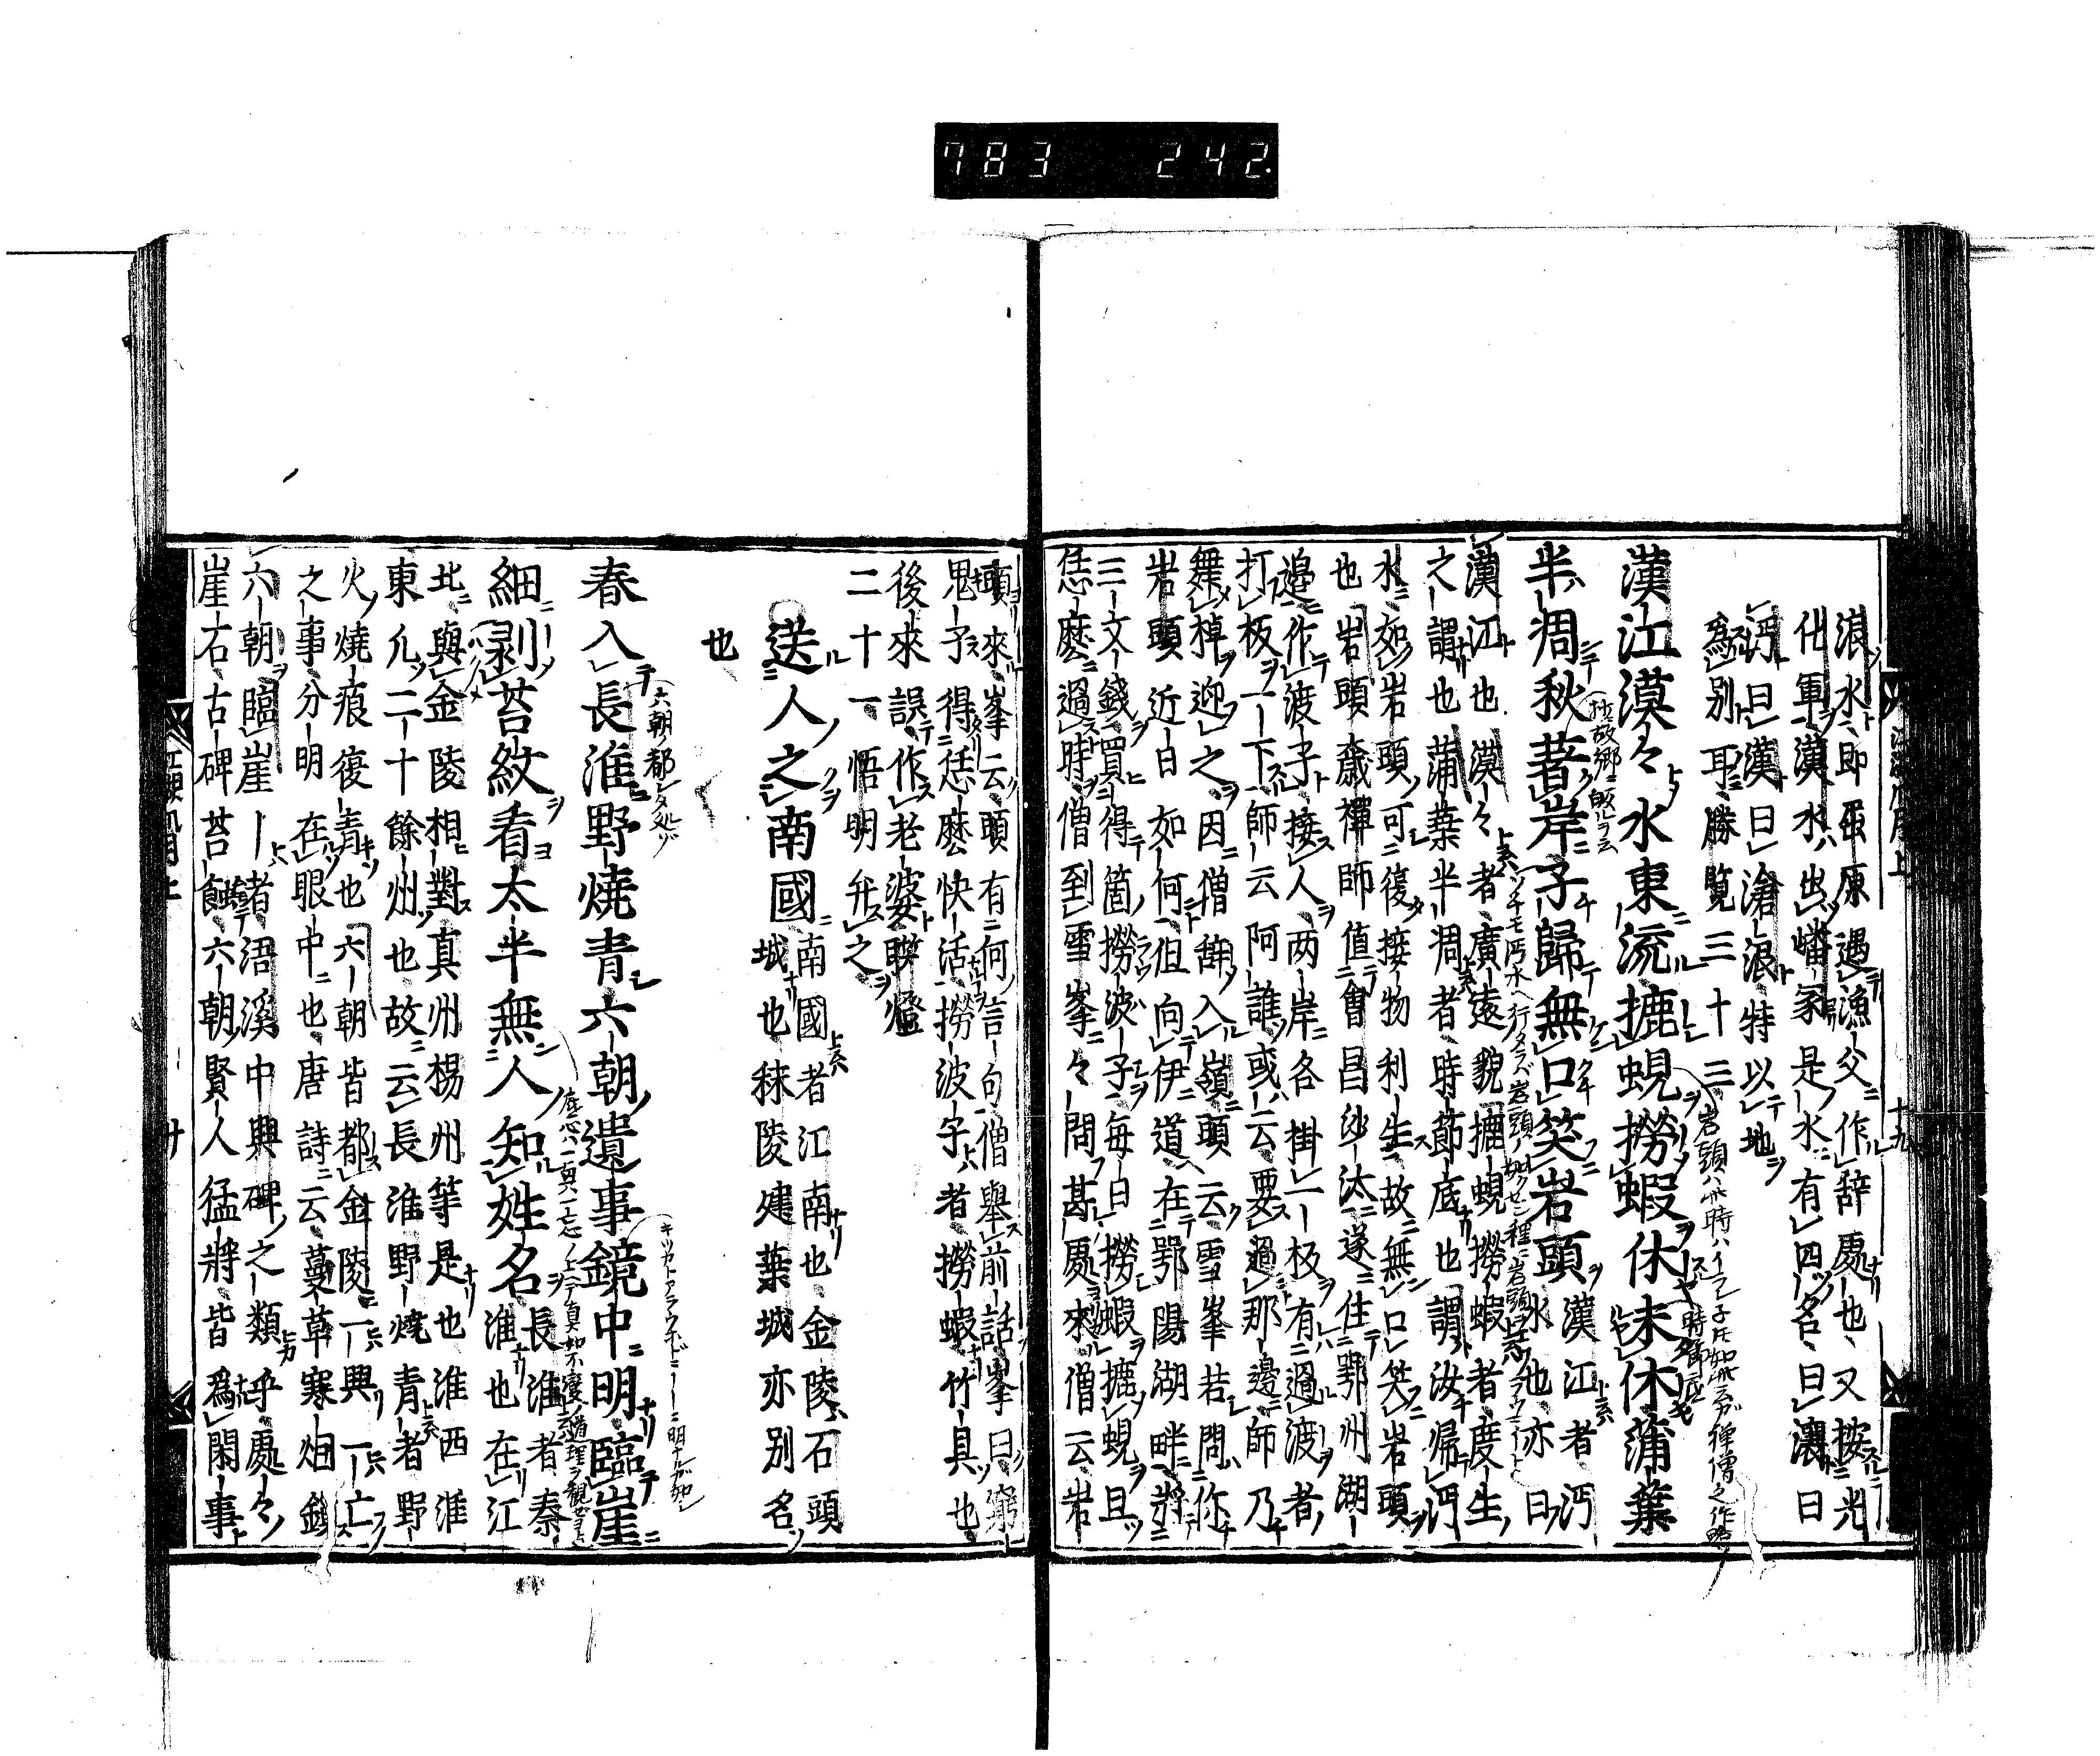 783 242.
浪水即屈原遇漁父作辞處也又按光
化軍漢水出嶓冢是水有四名曰瀼曰
沔曰漢曰滄浪特以地
為別耳勝覧三十三
漢江漠々水東流摝蜆撈蝦休未休蒲葉
半凋秋著岸子歸無口笑岩頭
漢江者沔
水也亦曰
漢江也漠々者廣遠貌摝蜆撈蝦者度生
之謂也蒲葉半凋者時節底也謂汝帰沔
水如岩頭可復接物利生故無口笑岩頭
也岩頭奯禪師値會昌沙汰遂住鄂州湖
邊作渡子接人两岸各掛一板有過渡者
打板一下師云阿誰或云要過那邊師乃
舞棹迎之因僧辞入嶺頭云雪峯若問你
岩頭近日如何但向伊道在鄂陽湖畔將
三文錢買得箇撈波子毎日撈蝦摝蜆且
恁麼過時僧到雪峯々問甚處來僧云岩
頭來峯云頭有何言句僧舉前話峯曰窮
鬼子得恁麼快活撈波子者撈蝦竹具也
後來誤作老婆聯燈
二十一悟明弁之
送人之南國
南國者江南也金陵石頭
城也秣陵建葉城亦别名
也
春入長淮野燒青六朝遺事鏡中明臨崖
細剥苔紋看太半無人知姓名
長淮者秦
淮也在江
北與金陵相對真州楊州等是也淮西淮
東凢二十餘州也故云長淮野燒青者野
火燒痕復青也六朝皆都金陵一興一亡
之事分明在眼中也唐詩云蔓草寒烟鎖
六朝臨崖ー者浯溪中興碑之類乎處々
崖石古碑苔蝕六朝賢人猛將皆為閑事